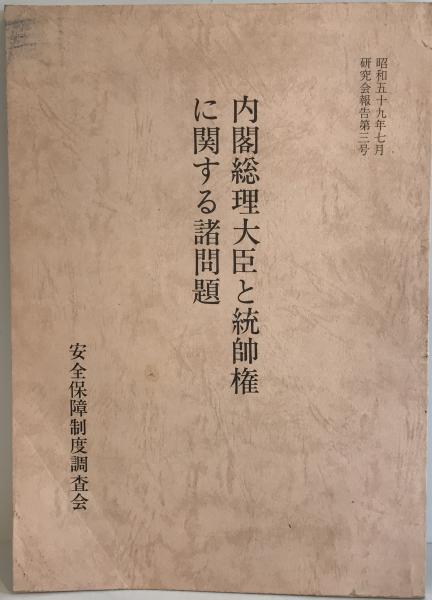 昭和五十九年七月
研究会報告第三号
内閣総理大臣と統帥権
に関する諸問題
安全保障制度調査会